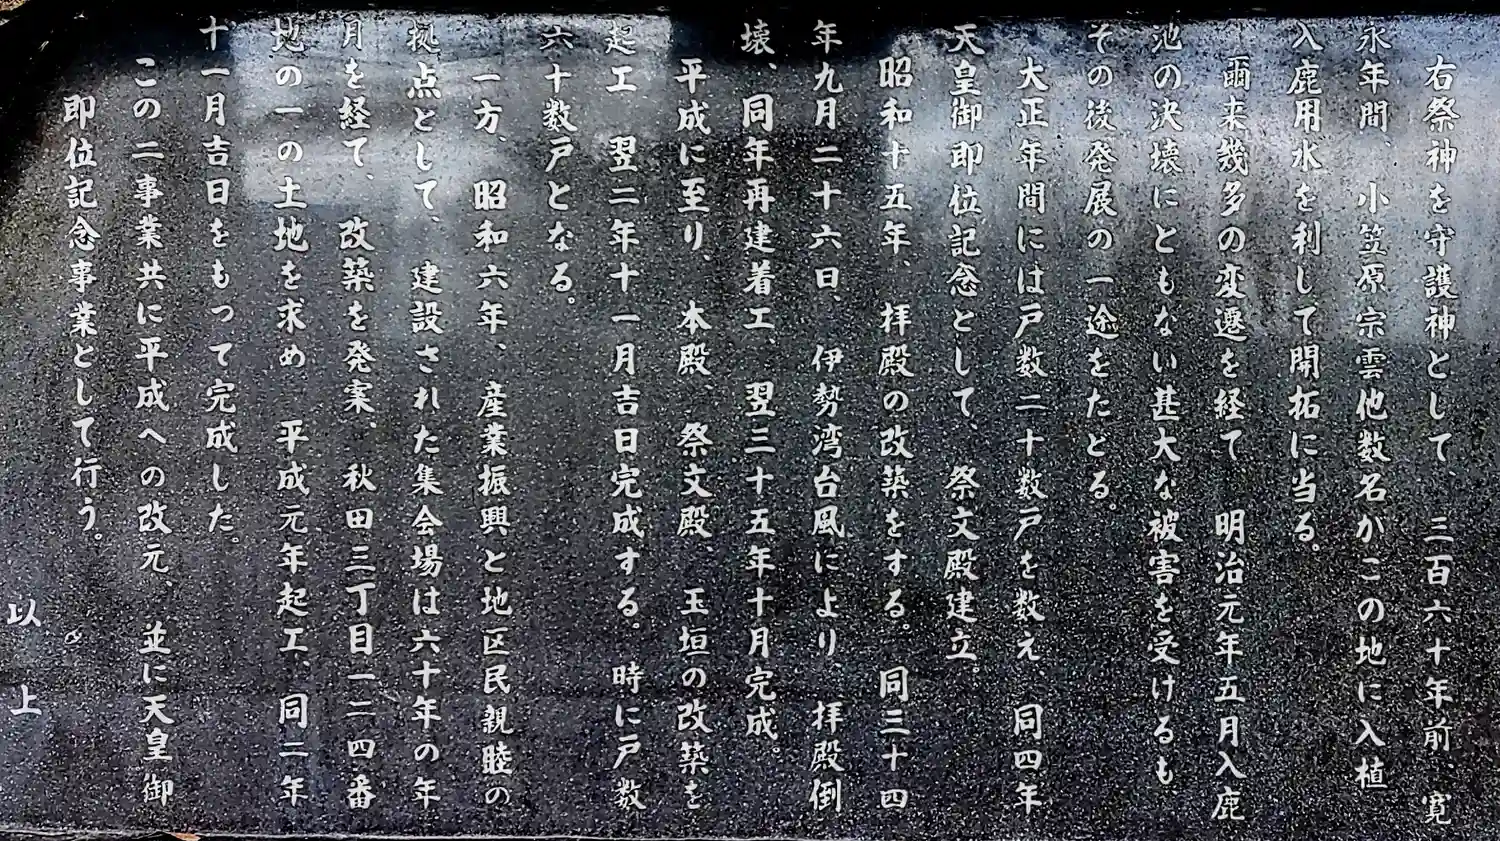 右祭神を守護神として、三百六十年前、寛
永年間、小笠原宗雲他数名がこの地に入植
入鹿用水を利して開拓に当る。
爾来幾多の変遷を経て 明治元年五月入鹿
池の決壊にともない甚大な被害を受けるも
その後発展の一途をたどる。
大正年間には戸数二十数戸を数え、同四年
天皇御即位記念として、祭文殿建立。
昭和十五年、拝殿の改築をする。同三十四
年九月二十六日、伊勢湾台風により 拝殿倒
壊、同年再建着工、翌三十五年十月完成。
平成に至り、本殿、祭文殿、玉垣の改築を
起工 翌二年十一月吉日完成する。時に戸数
六十数戸となる。
一方、昭和六年、産業振興と地区民親睦の
拠点として、建設された集会場は六十年の年
月を経て、改築を発案、秋田三丁目一二四番
地の一の土地を求め 平成元年起工、同二年
十一月吉日をもって完成した。
この二事業共に平成への改元、並に天皇御
即位記念事業として行う。
以上